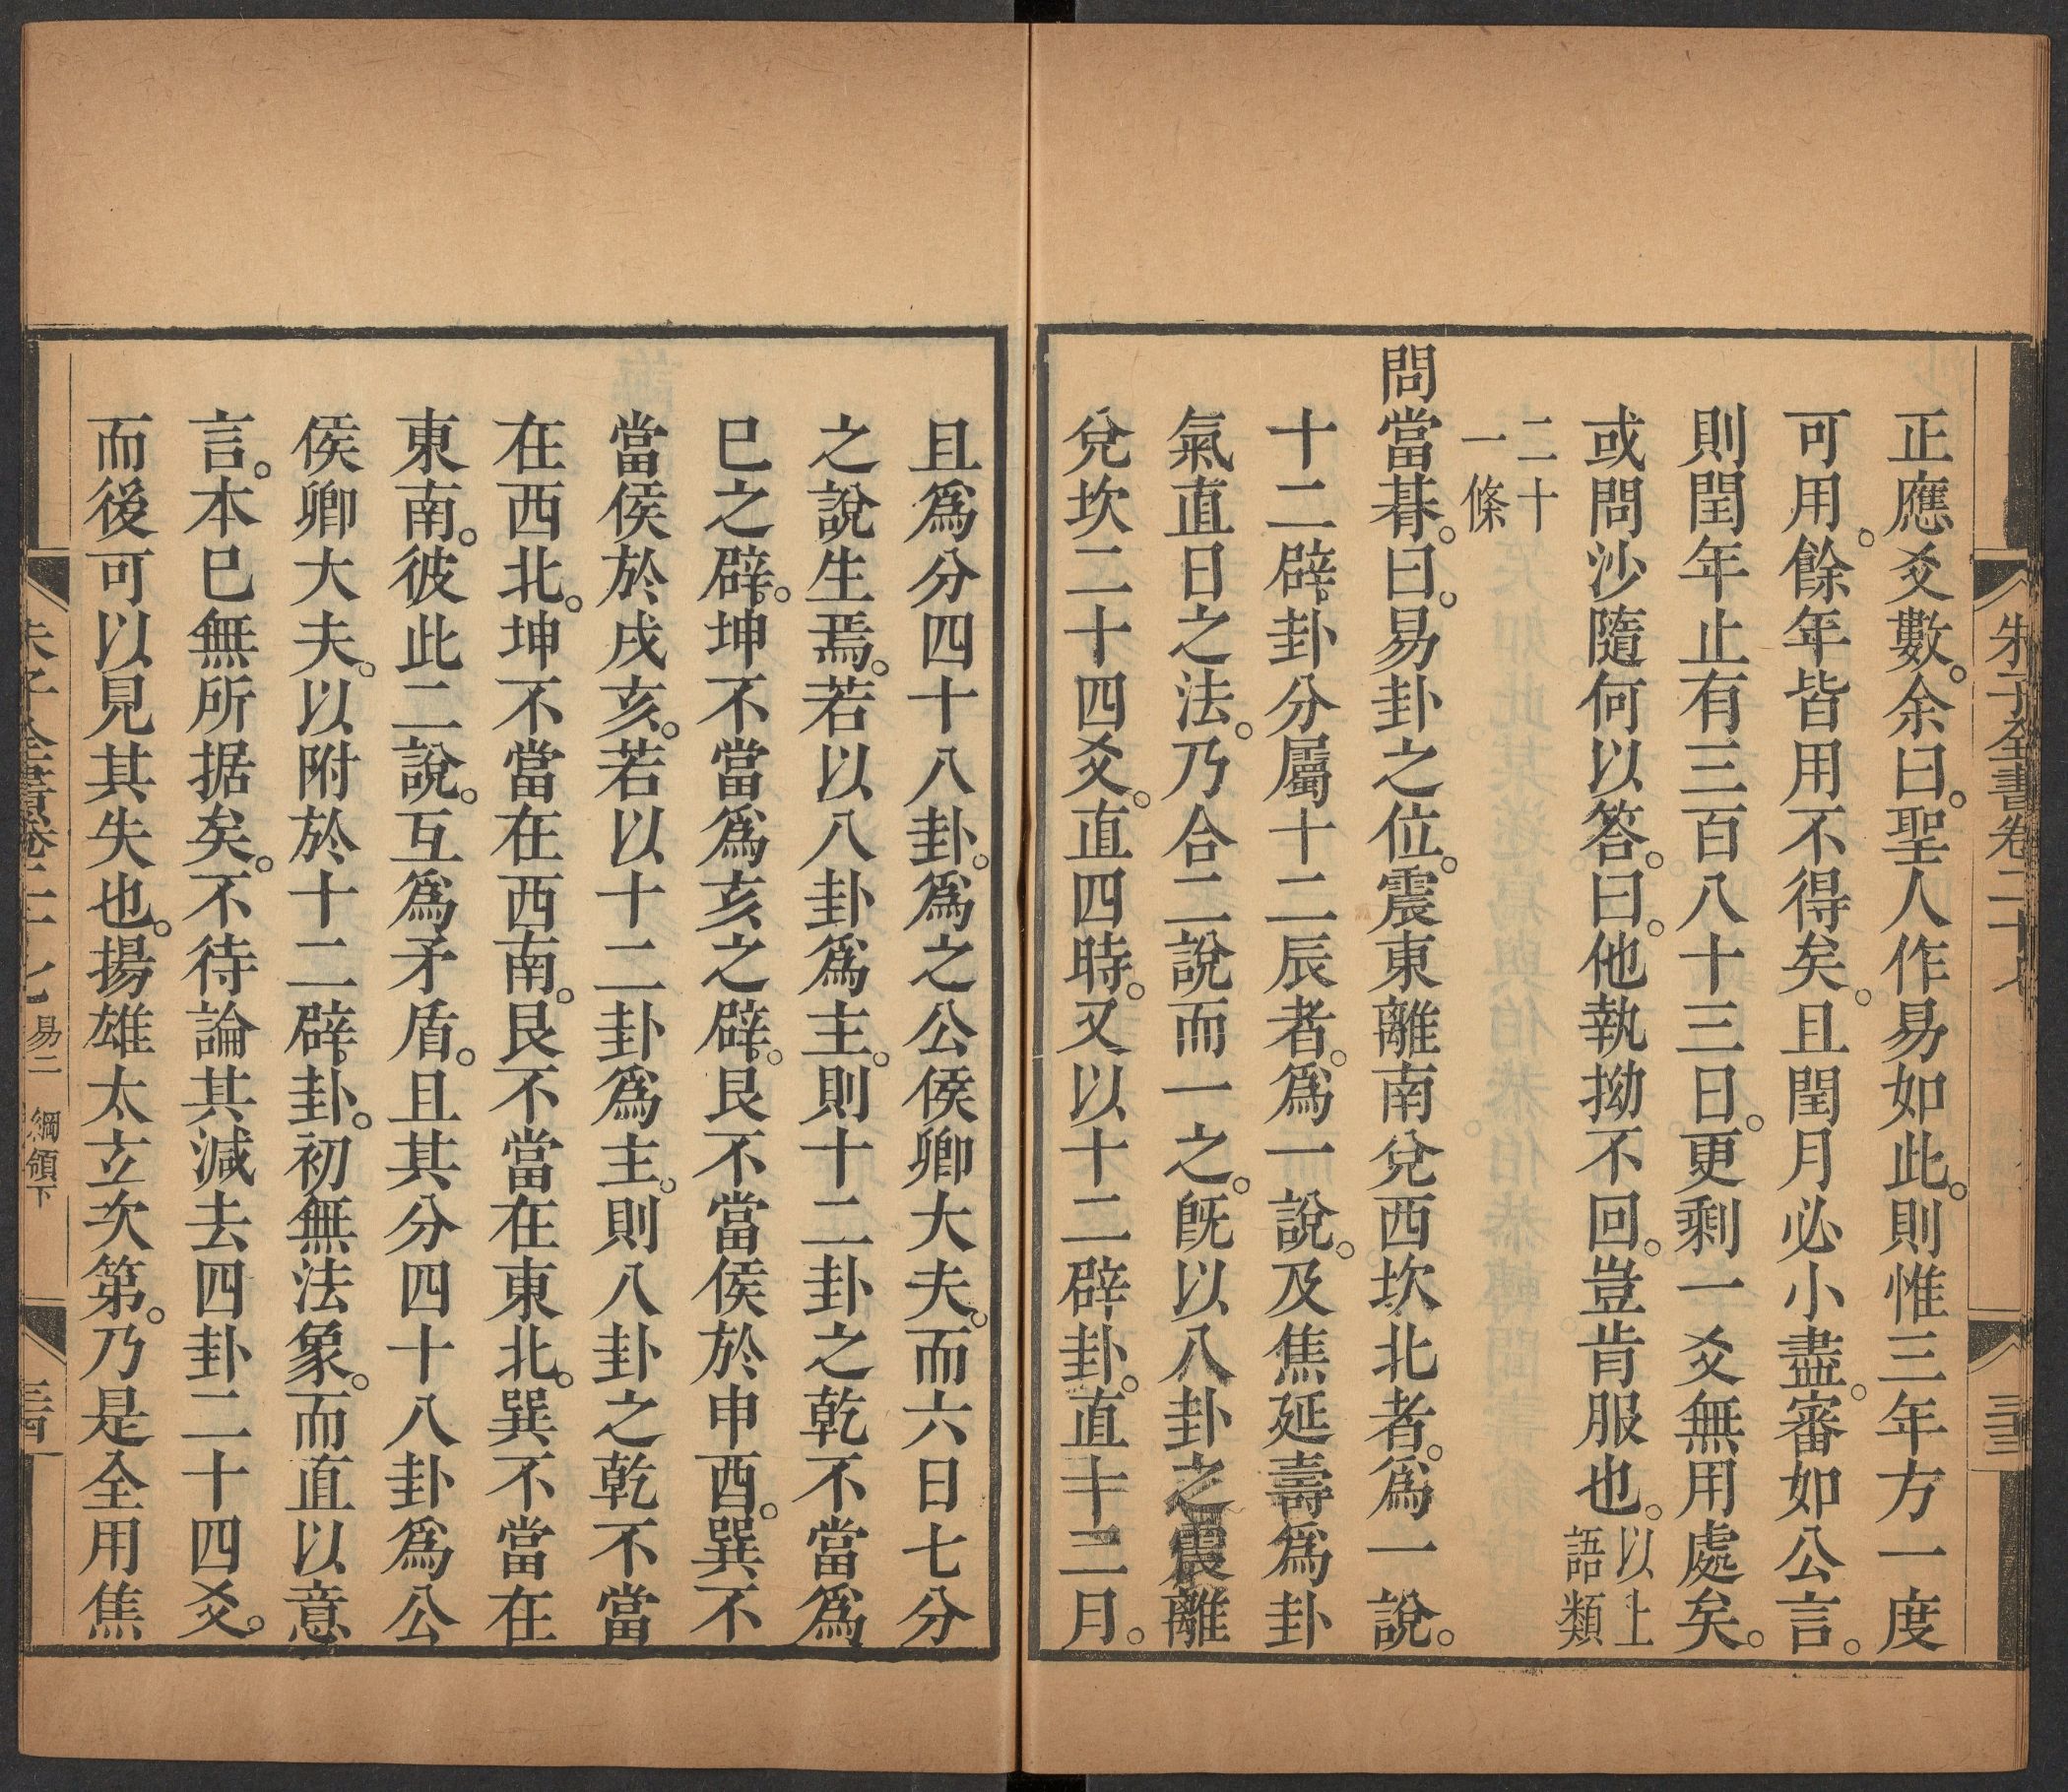 朱子全書卷二十七
三十三
正應爻數。余曰。聖人作易如此。則惟三年方一度
可用。餘年皆用不得矣。且閏月必小盡。審如公言。
則閏年止有三百八十三日。更剩一爻無用處矣。
或問沙隨何以答。曰。他執拗不回。豈肯服也。以上語類
二十一條
問當朞。曰。易卦之位。震東離南兌西坎北者。爲一說。
十二辟卦分屬十二辰者。爲一說。及焦延壽爲卦
氣直日之法。乃合二說而一之。旣以八卦之震離
兌坎二十四爻。直四時。又以十二辟卦。直十二月。
且爲分四十八卦。爲之公侯卿大夫。而六日七分
之說生焉。若以八卦爲主。則十二卦之乾不當爲
巳之辟。坤不當爲亥之辟。艮不當侯於申酉。巽不
當侯於戌亥。若以十二卦爲主。則八卦之乾不當
在西北。坤不當在西南。艮不當在東北。巽不當在
東南。彼此二說。互爲矛盾。且其分四十八卦爲公
侯卿大夫。以附於十二辟卦。初無法象。而直以意
言。本已無所据矣。不待論其減去四卦二十四爻。
而後可以見其失也。揚雄太玄次第。乃是全用焦
朱子全書卷二十七 易二 綱領下
三十四